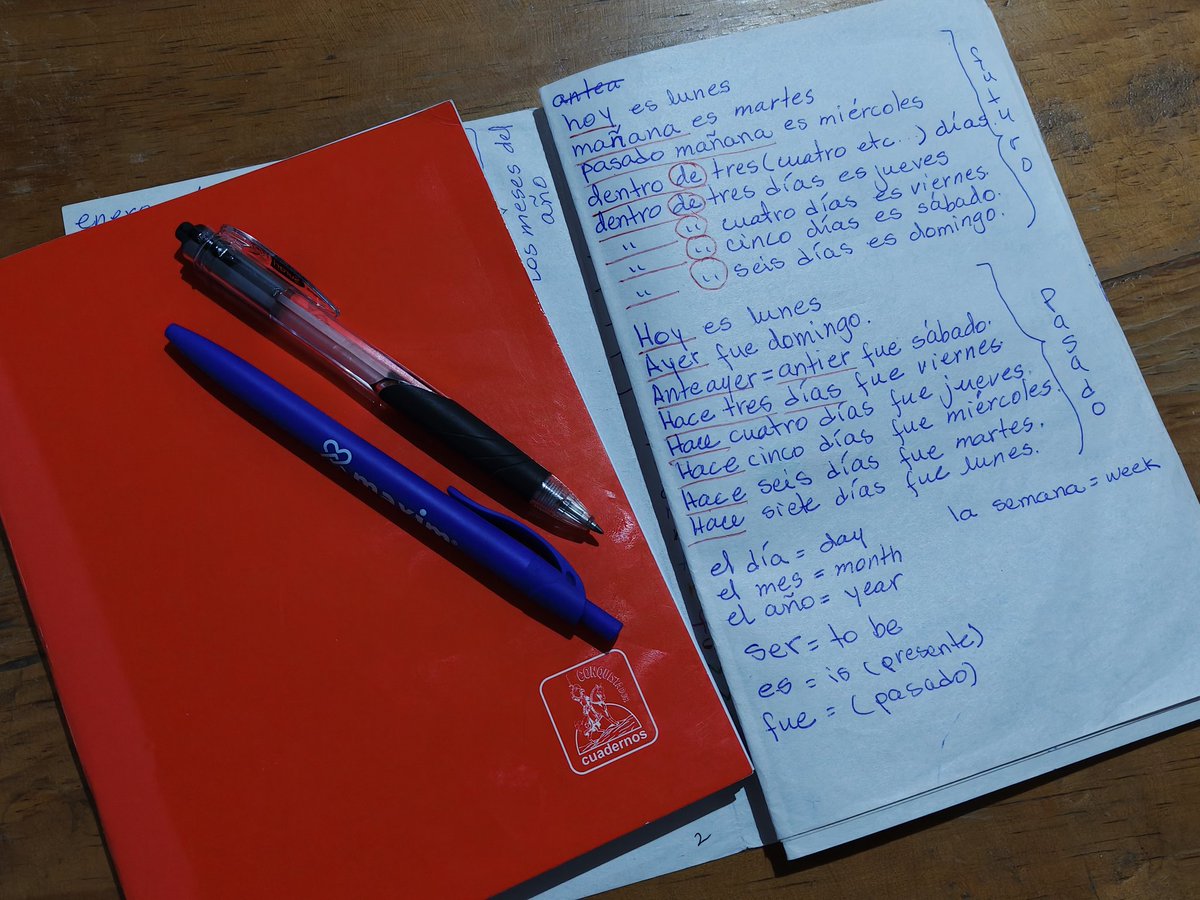 enero
Los meses del
año
antea
hoy es lunes
mañana es martes
pasado mañana es miércoles
dentro de tres (cuatro etc...) días.
dentro de tres días es jueves
" " cuatro días es viernes.
" " cinco días es sábado.
" " seis días es domingo.
futuro
Hoy es lunes
Ayer fue domingo.
Anteayer = antier fue sábado.
Hace tres días fue viernes.
Hace cuatro días fue jueves.
Hace cinco días fue miércoles.
Hace seis días fue martes.
Hace siete días fue lunes.
Pasado
la semana = week
el día = day
el mes = month
el año = year
ser = to be
es = is (presente)
fue = (pasado)
maxim
CONQUISTADOR
cuadernos
2